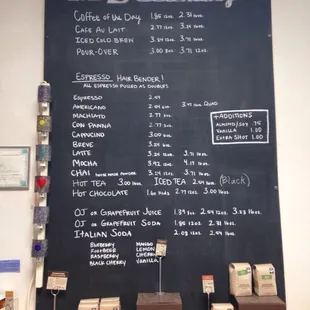 Coffee of the Day 1.85 12oz. 2.31 16oz.
Cafe Au Lait 2.77 12oz. 3.23 16oz.
Iced Cold Brew 3.24 12oz. 3.70 16oz.
Pour-Over 3.00 8oz. 3.71 12oz.
Espresso Hair Bender!
All espresso pulled as doubles
Espresso 2.54
Americano 2.54 3.47 Quad
Macchiato 2.77
Con Panna 2.77
Cappucino 3.00
Breve 3.24
Latte 3.24 12oz. 3.71 16oz.
Mocha 3.42 12oz. 4.17 16oz.
Chai 3.24 12oz. 3.71 16oz.
Hot Tea 3.00 16oz. Iced Tea 2.54 16oz. (Black)
Hot Chocolate 1.60 Kids 2.77 12oz. 3.00 16oz.
+Additions
Almond/Soy .75
Vanilla 1.00
Extra Shot 1.00
OJ or Grapefruit Juice 1.39 8oz. 2.54 12oz. 3.23 16oz.
OJ or Grapefruit Soda 2.31 12oz. 2.81 16oz.
Italian Soda 2.08 12oz. 2.54 16oz.
Blueberry Mango
Rootbeer Lemon
Raspberry Cherry
Black Cherry Vanilla